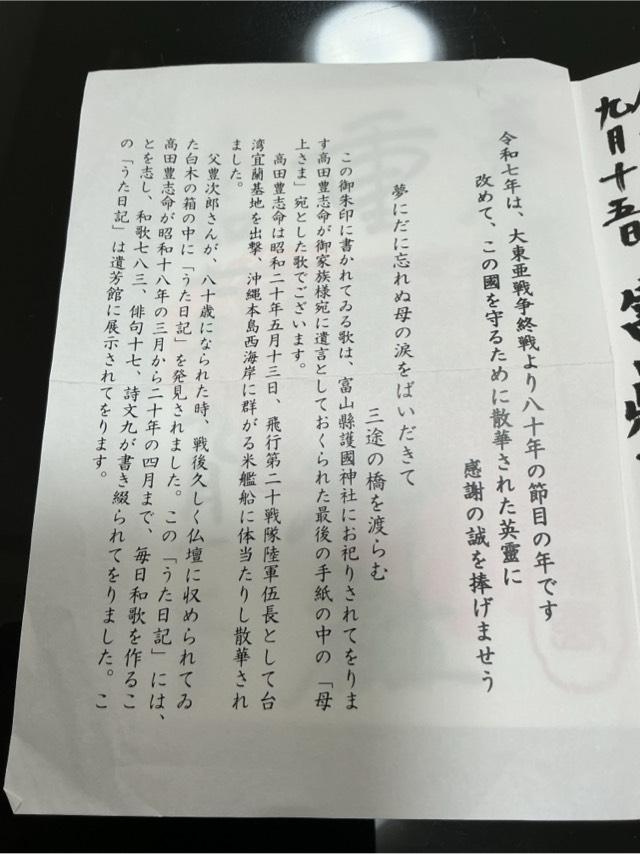 九月十五日
令和七年は、大東亜戦争終戦より八十年の節目の年です
改めて、この國を守るために散華された英靈に
感謝の誠を捧げませう
夢にだに忘れぬ母の涙をばいだきて
三途の橋を渡らむ
この御朱印に書かれてゐる歌は、富山縣護國神社にお祀りされてをりま
す高田豊志命が御家族様宛に遺言としておくられた最後の手紙の中の「母
上さま」宛とした歌でございます。
高田豊志命は昭和二十年五月十三日、飛行第二十戦隊陸軍伍長として台
湾宜蘭基地を出撃、沖縄本島西海岸に群がる米艦船に体当たりし散華され
ました。
父豊次郎さんが、八十歳になられた時、戦後久しく仏壇に収められてゐ
た白木の箱の中に「うた日記」を発見されました。この「うた日記」には、
高田豊志命が昭和十八年の三月から二十年の四月まで、毎日和歌を作るこ
とを志し、和歌七八三、俳句十七、詩文九が書き綴られてをりました。こ
の「うた日記」は遺芳館に展示されてをります。